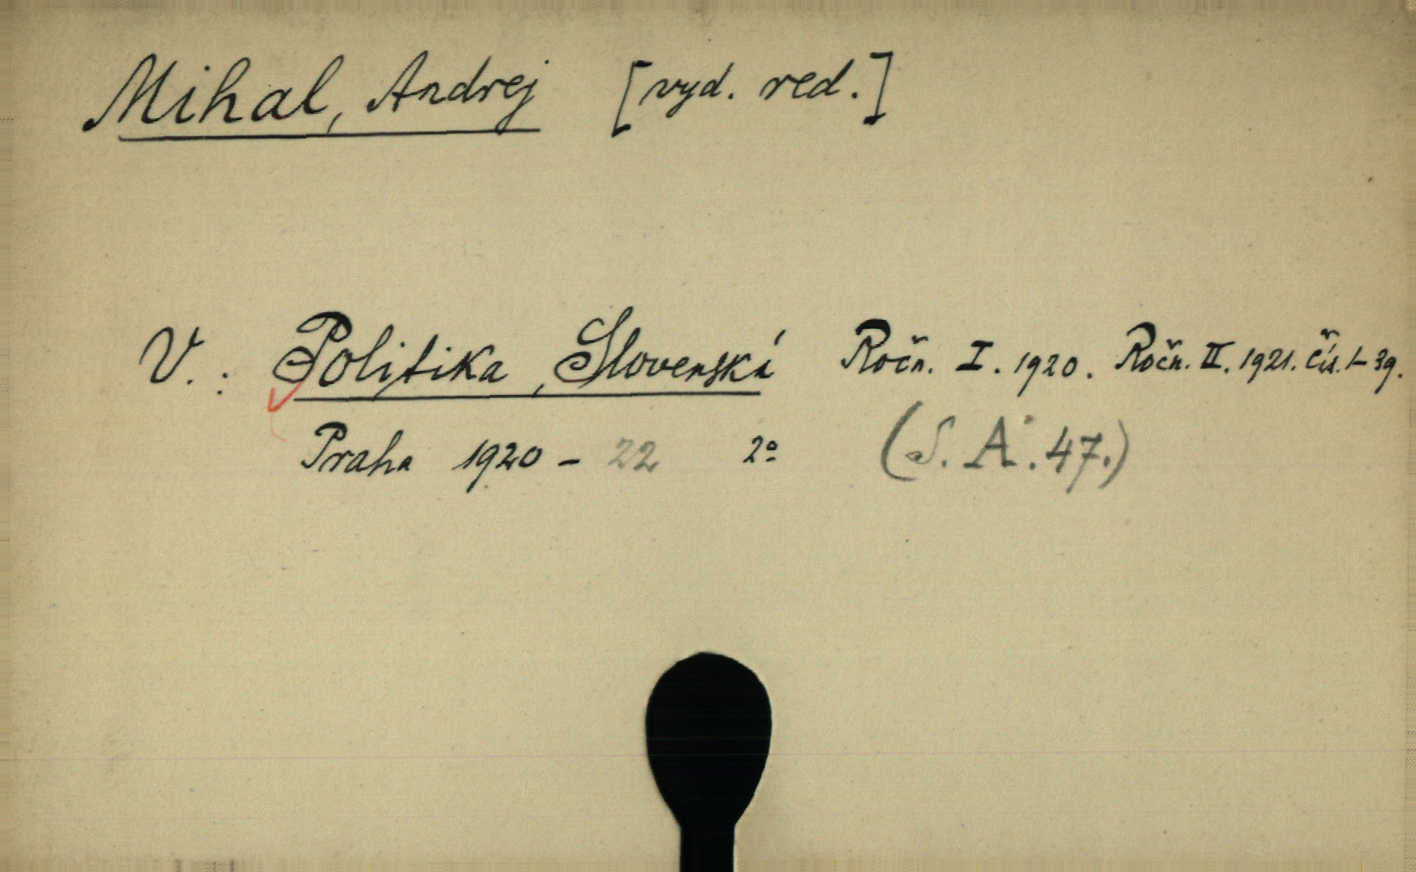 Mihal, Andrej [vyd. red.]
V.: Politika, Slovenská Ročn. I. 1920. Ročn. II. 1921. čís. 1-39.
Praha 1920 - 22 2º (S. A. 47.)